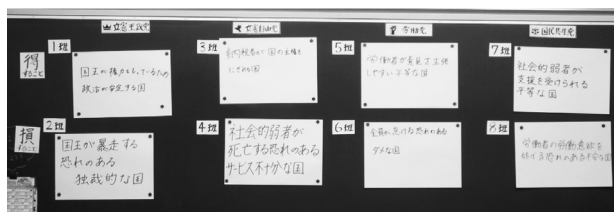 立憲主義
立憲自由党
労働党
国民共生党
得
すること
損
すること
1班
国王が権力をもっているため
政治が安定する国
2班
国王が暴走する
恐れのある
独裁的な国
3班
国の主権を
にぎれる国
4班
社会的弱者が
死亡する恐れのある
サービス不十分な国
5班
労働者が意見を主張
しやすい平等な国
6班
全員が怠ける恐れのある
ダメな国
7班
社会的弱者が
支援を受けられる
平等な国
8班
労働者の労働意欲を
低下る恐れのある不安な国